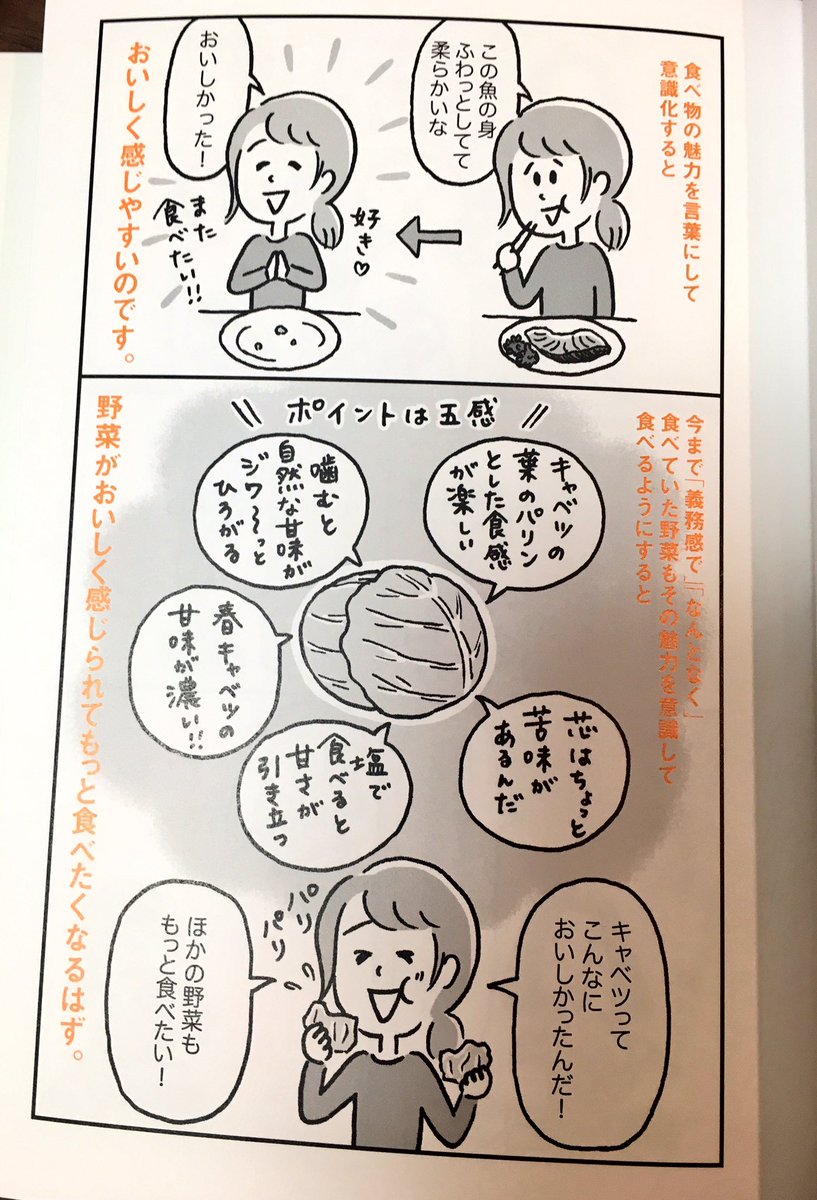 食べ物の魅力を言葉にして
意識化すると
この魚の身
ふわっとしてて
柔らかいな
おいしかった！
好き♡
また
食べたい!!
おいしく感じやすいのです。
今まで「義務感で」「なんとなく」
食べていた野菜もその魅力を意識して
食べるようにすると
ポイントは五感
キャベツの
葉のパリン
とした食感
が楽しい
噛むと
自然な甘味が
ジワ～っと
ひろがる
春キャベツの
甘味が濃い!!
芯はちょっと
苦味が
あるんだ
塩で
食べると
甘さが
引き立つ
キャベツって
こんなに
おいしかったんだ！
パリ
パリ
ほかの野菜も
もっと食べたい！
野菜がおいしく感じられてもっと食べたくなるはず。